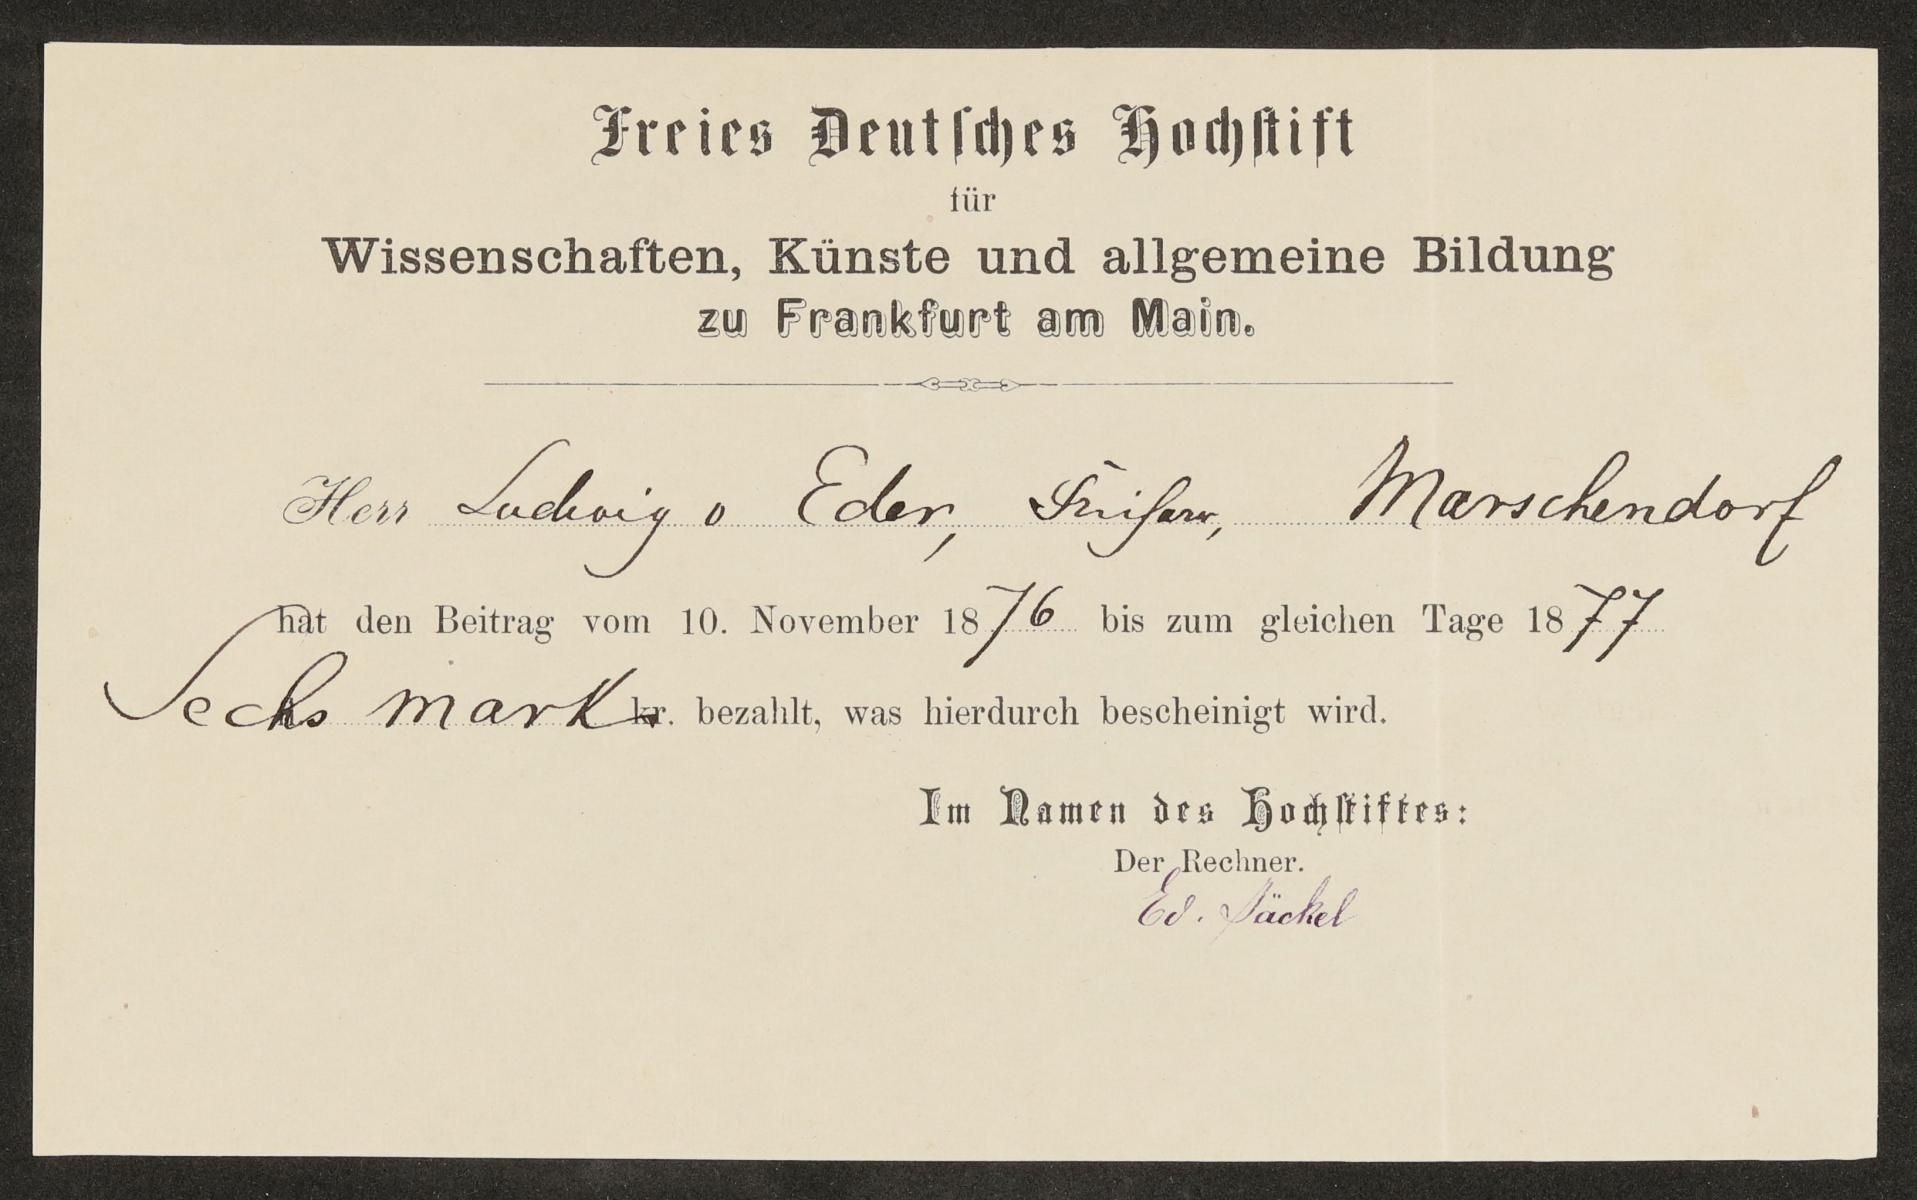 Freies Deutſches Hochſtift
für
Wissenschaften, Künste und allgemeine Bildung
zu Frankfurt am Main.
Herr Ludwig v Eder, Marschendorf
hat den Beitrag vom 10. November 1876 bis zum gleichen Tage 1877
Sechs Mark kr. bezahlt, was hierdurch bescheinigt wird.
Im Namen des Hochſtiftes:
Der Rechner.
Ed. Säckel